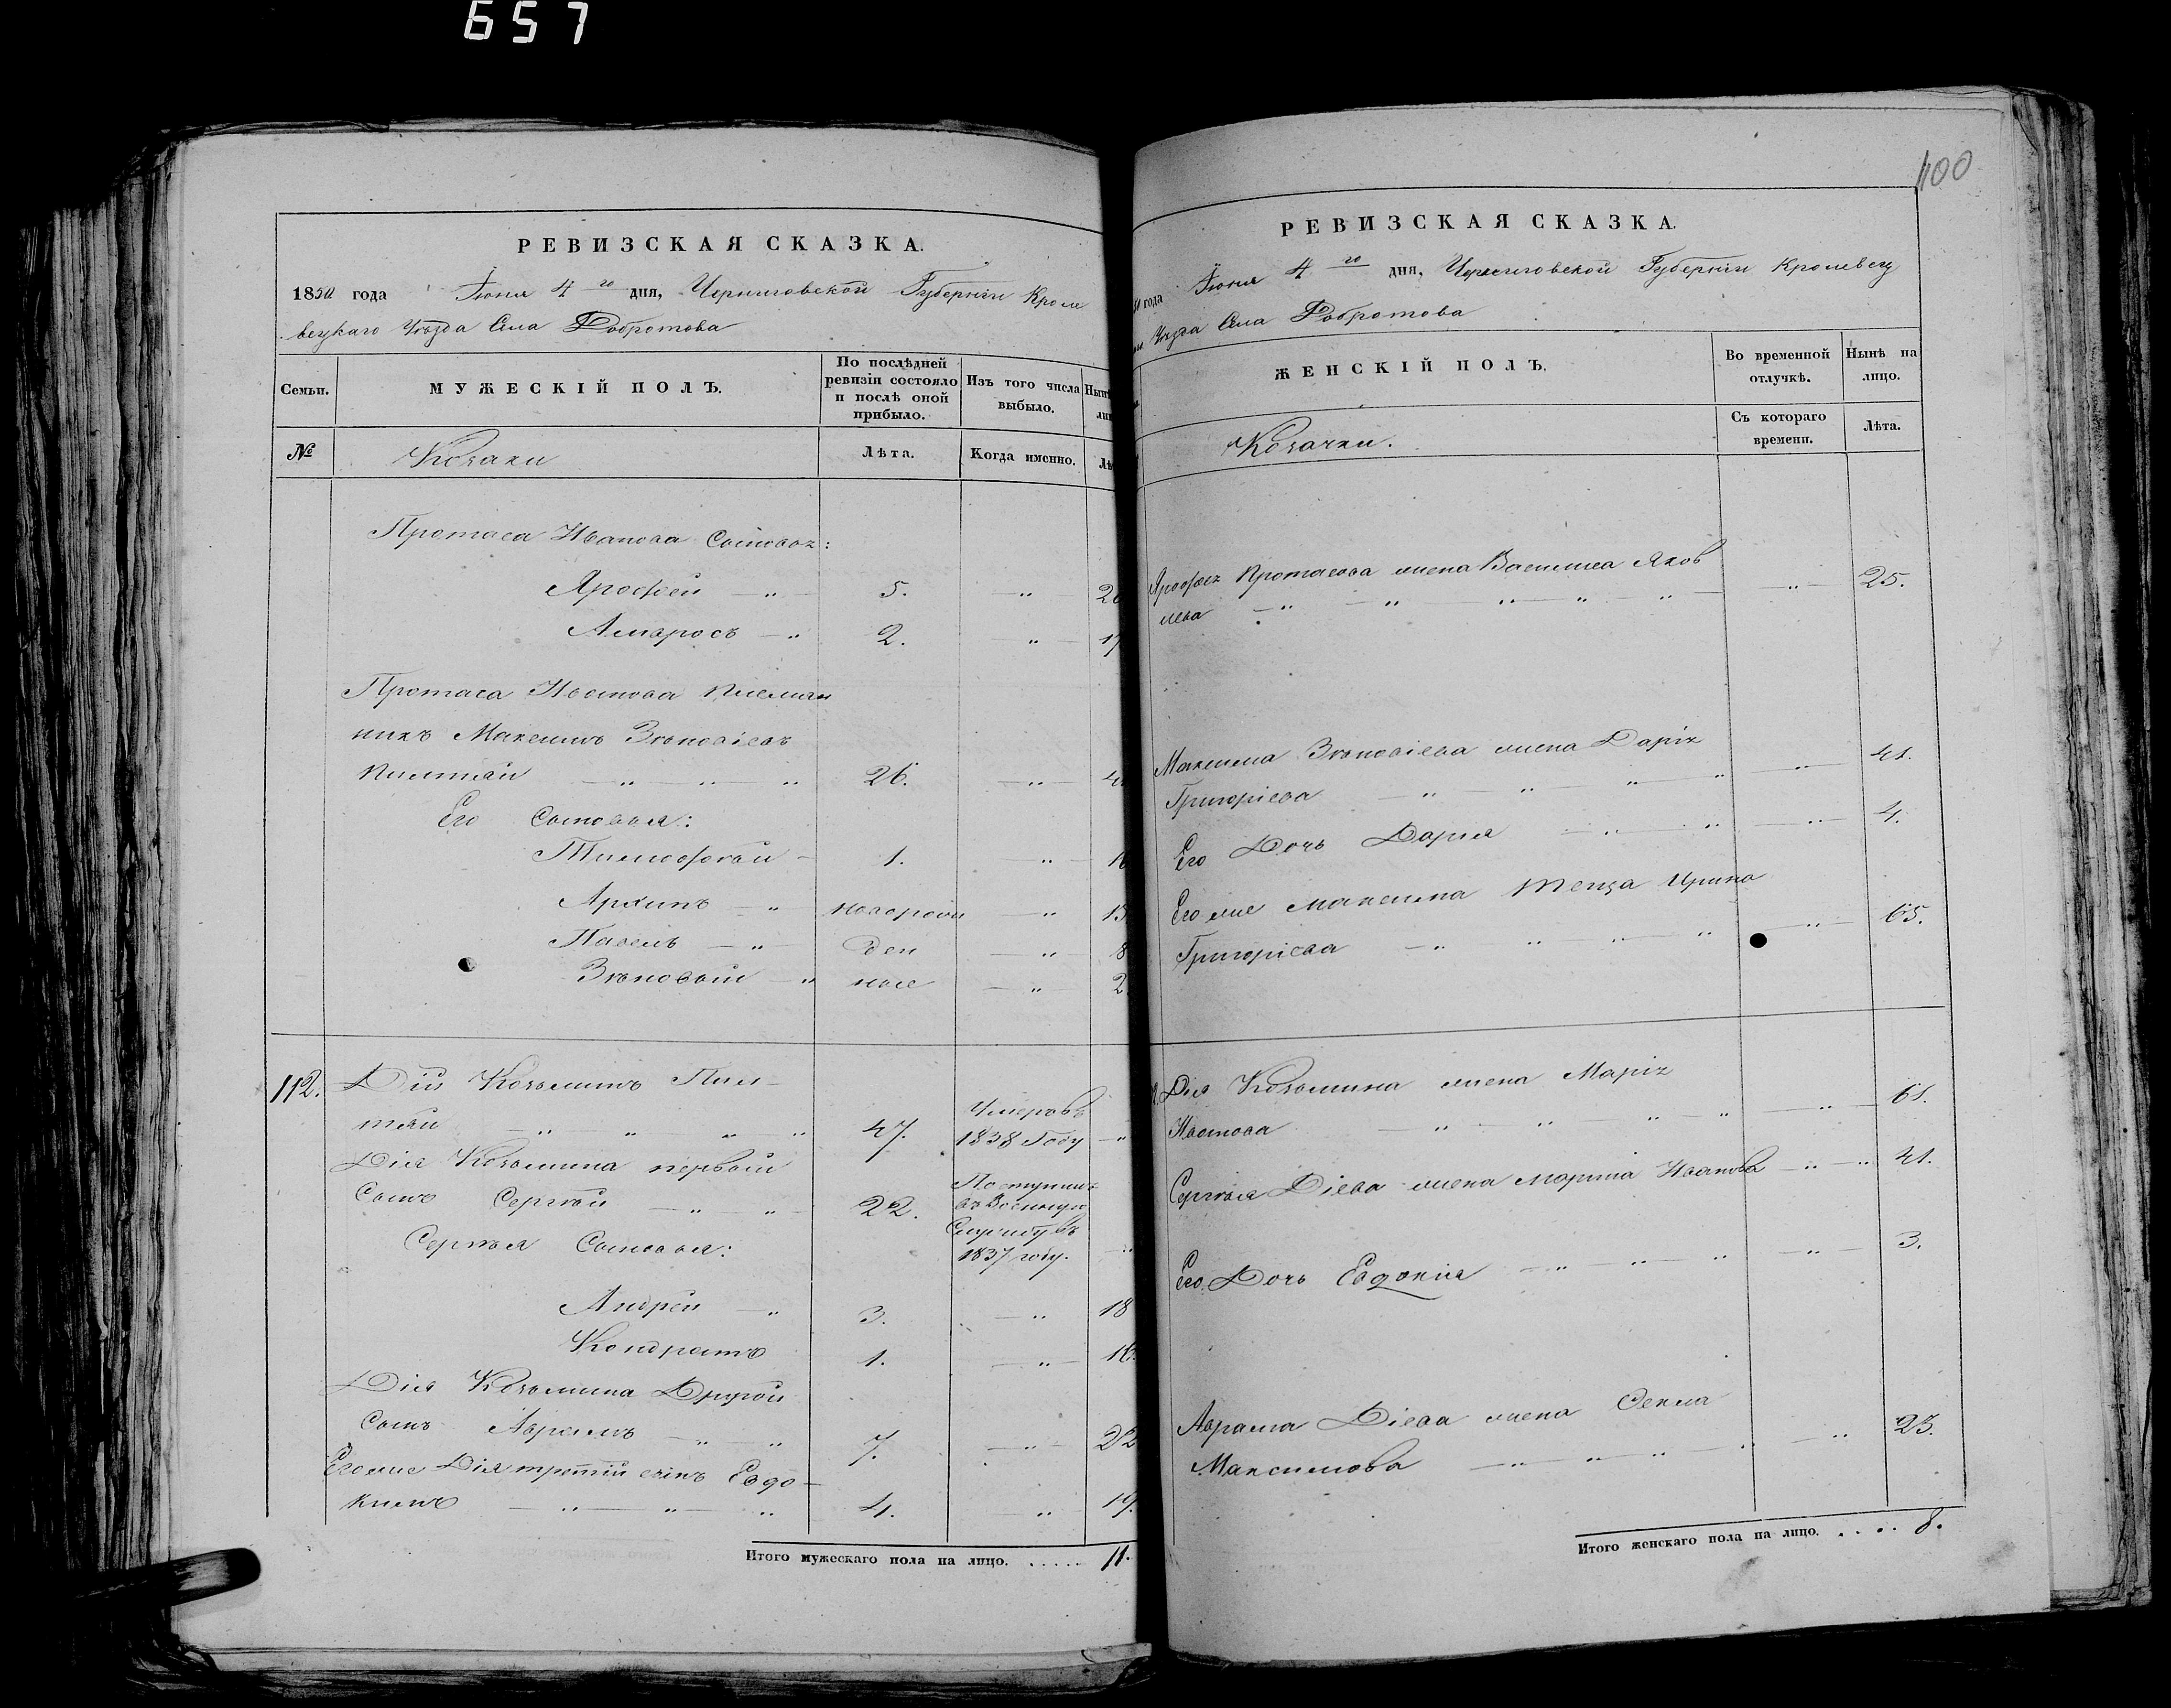 657
РЕВИЗСКАЯ СКАЗКА.
1850 года Іюня 4го дня, Черниговской Губерніи Кроле
вецкаго Уѣзда Села Добротова
Семьи.
МУЖЕСКІЙ ПОЛЪ.
По послѣдней
ревизіи состояло
и послѣ оной
прибыло.
Изъ того числа
выбыло.
№
Козаки
Лѣта.
Когда именно.
Протаса Иванова Сыновья:
Ярофей 5.
Амвросъ 2. 17
Протаса Иванова племян
никъ Максимъ Зѣновіевъ
26.
Его Сыновья:
Тимофѣй 1.
Архипъ новорож 15
Павелъ ден 8
Зѣновій ные 2
112. Дій Козьминъ Пил
тяй 47. Умеръ въ 1838 Году
Дія Козьмина первый
Сынъ Сергѣй 22. Поступилъ
въ Военную
Службу въ
1837 году.
Сергѣя Сыновья:
Андрей 3. 18
Кондратъ 1. 16.
Дія Козьмина Другой
Сынъ Аврамъ 7. 22
Его же Дія третій сынъ Евдо
кимъ 4. 19.
Итого мужескаго пола на лицо. ..... 11.
100
РЕВИЗСКАЯ СКАЗКА.
года Іюня 4го дня, Черниговской Губерніи Кролевец
Уѣзда Села Добротова
ЖЕНСКІЙ ПОЛЪ.
Во временной
отлучкѣ.
Нынѣ на
лицо.
Козачки.
Съ котораго
времени.
Лѣта.
Протасова жена Василиса Яков
лева 25.
Максима Зѣновіева жена Дарія
Григоріева 41.
Его Дочь Дарія 4.
Его же Максима теща Ирина
Григоріева 65.
Дія Козьмина жена Марія
Иванова 61.
Сергѣя Діева жена Марина Иванова 41.
Его Дочь Евдокія 3.
Аврама Діева жена Фекла
Максимова 23.
Итого женскаго пола на лицо. .... 8.